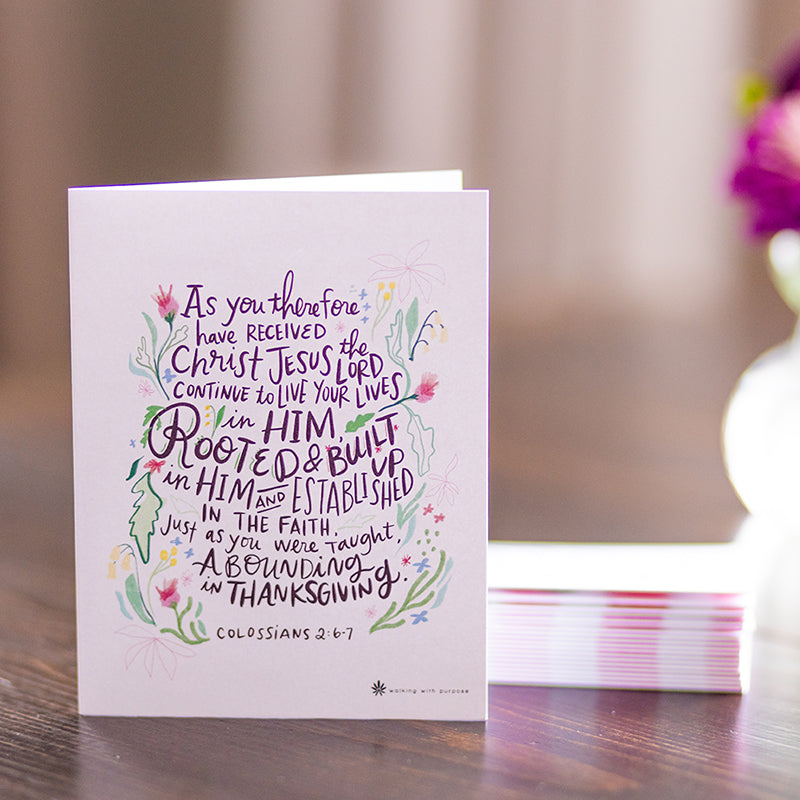 As you therefore
have RECEIVED
Christ JESUS the
LORD
CONTINUE to LIVE YOUR LIVES
in HIM,
ROOTED & BUILT
UP
in HIM AND ESTABLISHED
IN THE FAITH,
Just as you were Taught,
ABOUNDING
in THANKSGIVING.
COLOSSIANS 2:6-7
walking with purpose